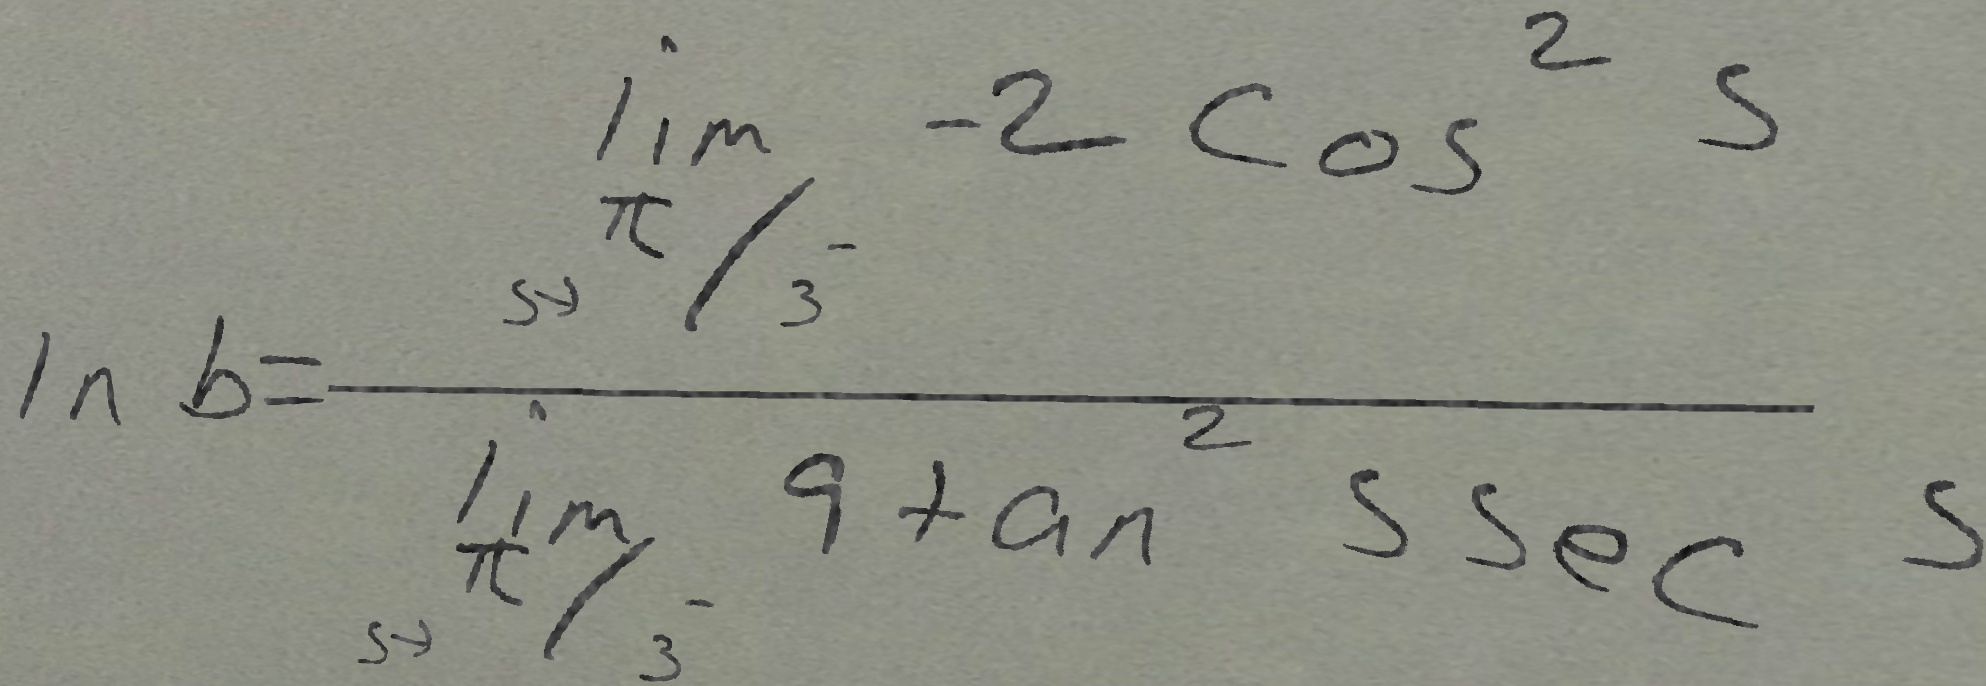 \ln b = \frac{\lim_{s \to \pi/3^-} -2 \cos^2 s}{\lim_{s \to \pi/3^-} 9 \tan^2 s \sec s}